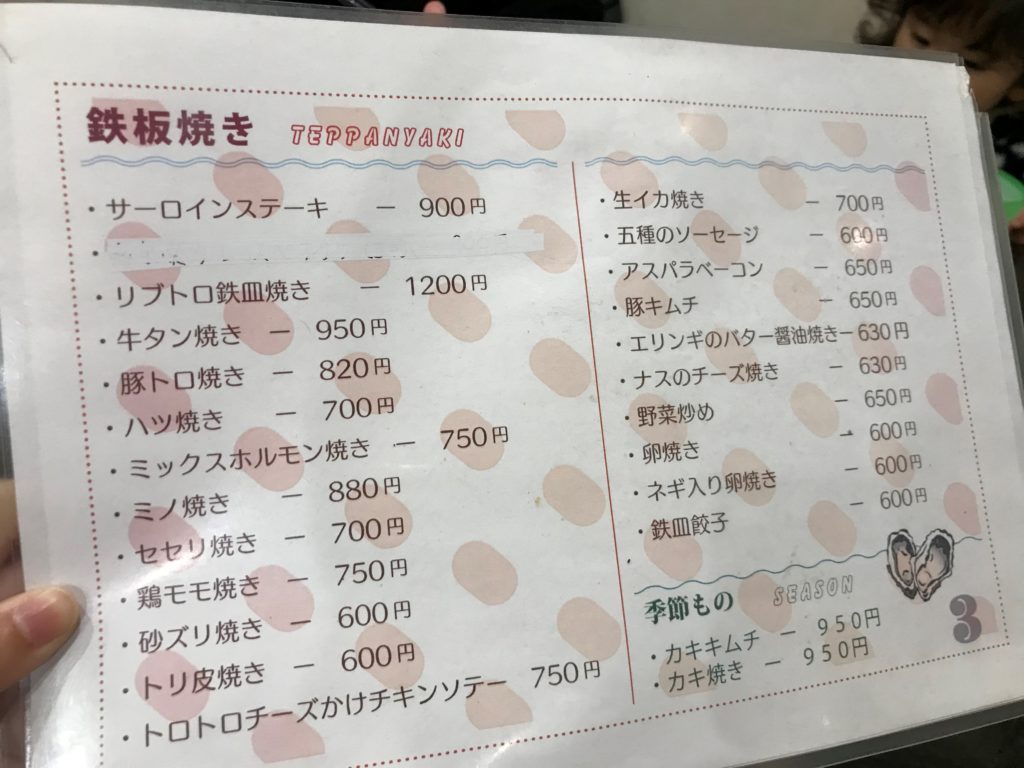 鉄板焼き TEPPANYAKI
・サーロインステーキ ー 900円
・リブトロ鉄皿焼き ー 1200円
・牛タン焼き ー 950円
・豚トロ焼き ー 820円
・ハツ焼き ー 700円
・ミックスホルモン焼き ー 750円
・ミノ焼き ー 880円
・セセリ焼き ー 700円
・鶏モモ焼き ー 750円
・砂ズリ焼き ー 600円
・トリ皮焼き ー 600円
・トロトロチーズかけチキンソテー 750円
・生イカ焼き ー 700円
・五種のソーセージ ー 600円
・アスパラベーコン ー 650円
・豚キムチ ー 650円
・エリンギのバター醤油焼きー630円
・ナスのチーズ焼き ー 630円
・野菜炒め ー 650円
・卵焼き ー 600円
・ネギ入り卵焼き ー 600円
・鉄皿餃子 ー 600円
季節もの SEASON
・カキキムチ ー 950円
・カキ焼き ー 950円
3